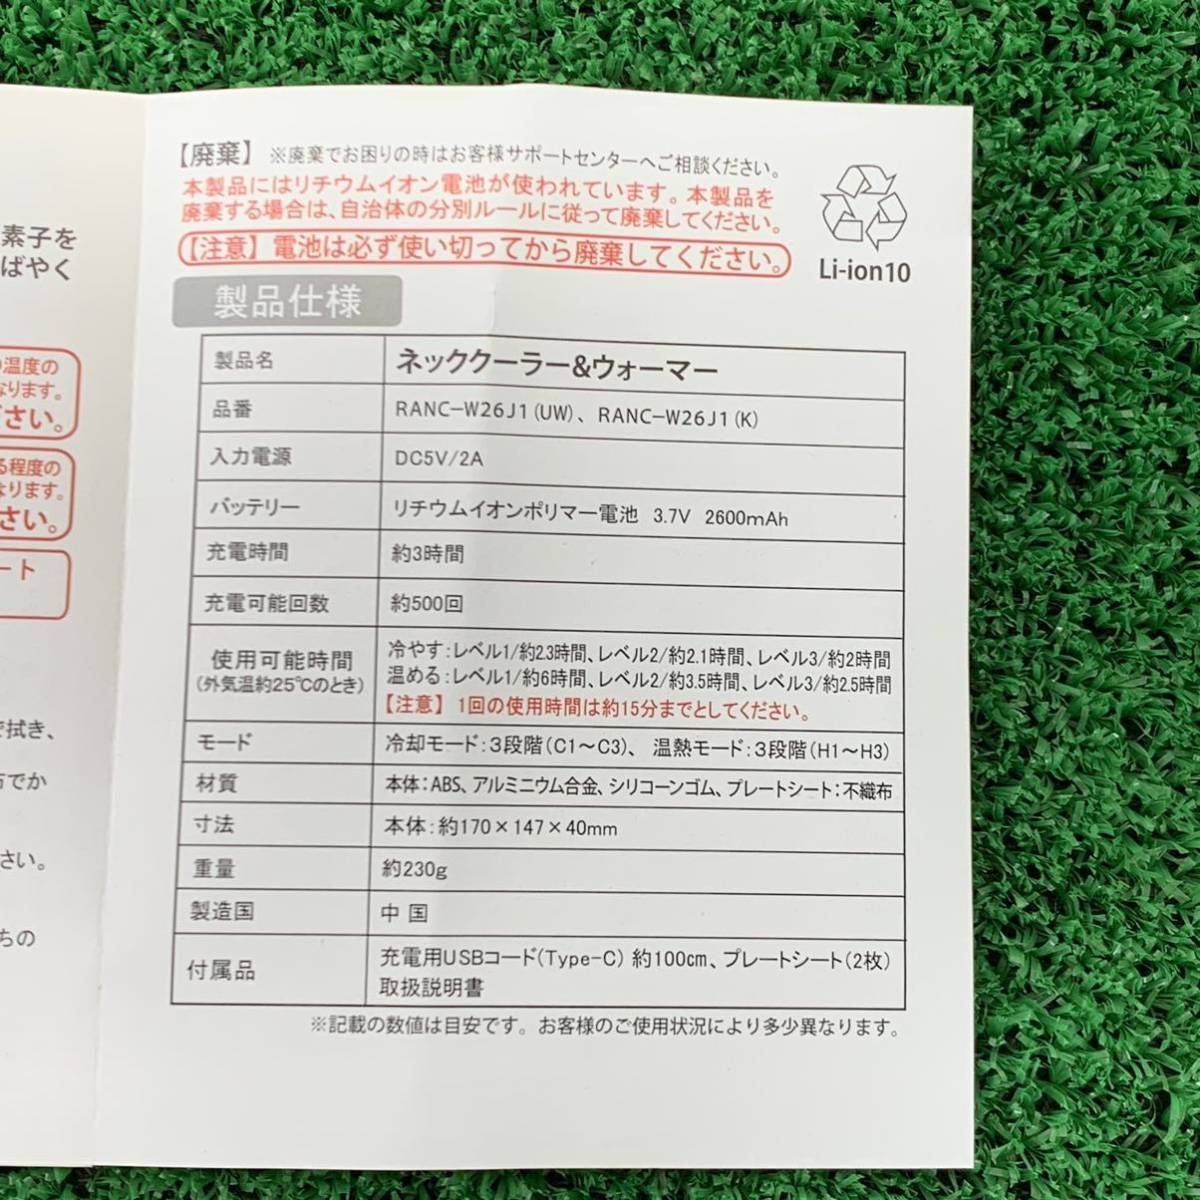 素子を
ばやく
温度の
なります。
ださい。
る程度の
なります。
さい。
ート
で拭き、
布でか
さい。
ちの
【廃棄】 ※廃棄でお困りの時はお客様サポートセンターへご相談ください。
本製品にはリチウムイオン電池が使われています。本製品を
廃棄する場合は、自治体の分別ルールに従って廃棄してください。
【注意】電池は必ず使い切ってから廃棄してください。
Li-ion10
製品仕様
製品名 ネッククーラー&ウォーマー
品番 RANC-W26J1(UW)、RANC-W26J1(K)
入力電源 DC5V/2A
バッテリー リチウムイオンポリマー電池 3.7V 2600mAh
充電時間 約3時間
充電可能回数 約500回
使用可能時間
(外気温約25℃のとき)
冷やす:レベル1/約2.3時間、レベル2/約2.1時間、レベル3/約2時間
温める:レベル1/約6時間、レベル2/約3.5時間、レベル3/約2.5時間
【注意】1回の使用時間は約15分までとしてください。
モード 冷却モード:3段階(C1～C3)、 温熱モード:3段階(H1～H3)
材質 本体:ABS、アルミニウム合金、シリコーンゴム、プレートシート:不織布
寸法 本体:約170×147×40mm
重量 約230g
製造国 中国
付属品
充電用USBコード(Type-C) 約100cm、プレートシート(2枚)
取扱説明書
※記載の数値は目安です。お客様のご使用状況により多少異なります。